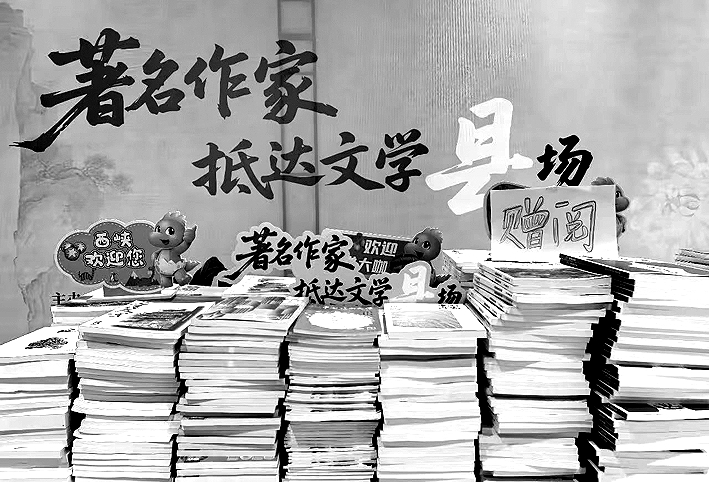 著名作家
抵达文学县场
赠阅
西峡
欢迎您
著名作家
欢迎
大咖
抵达文学县场